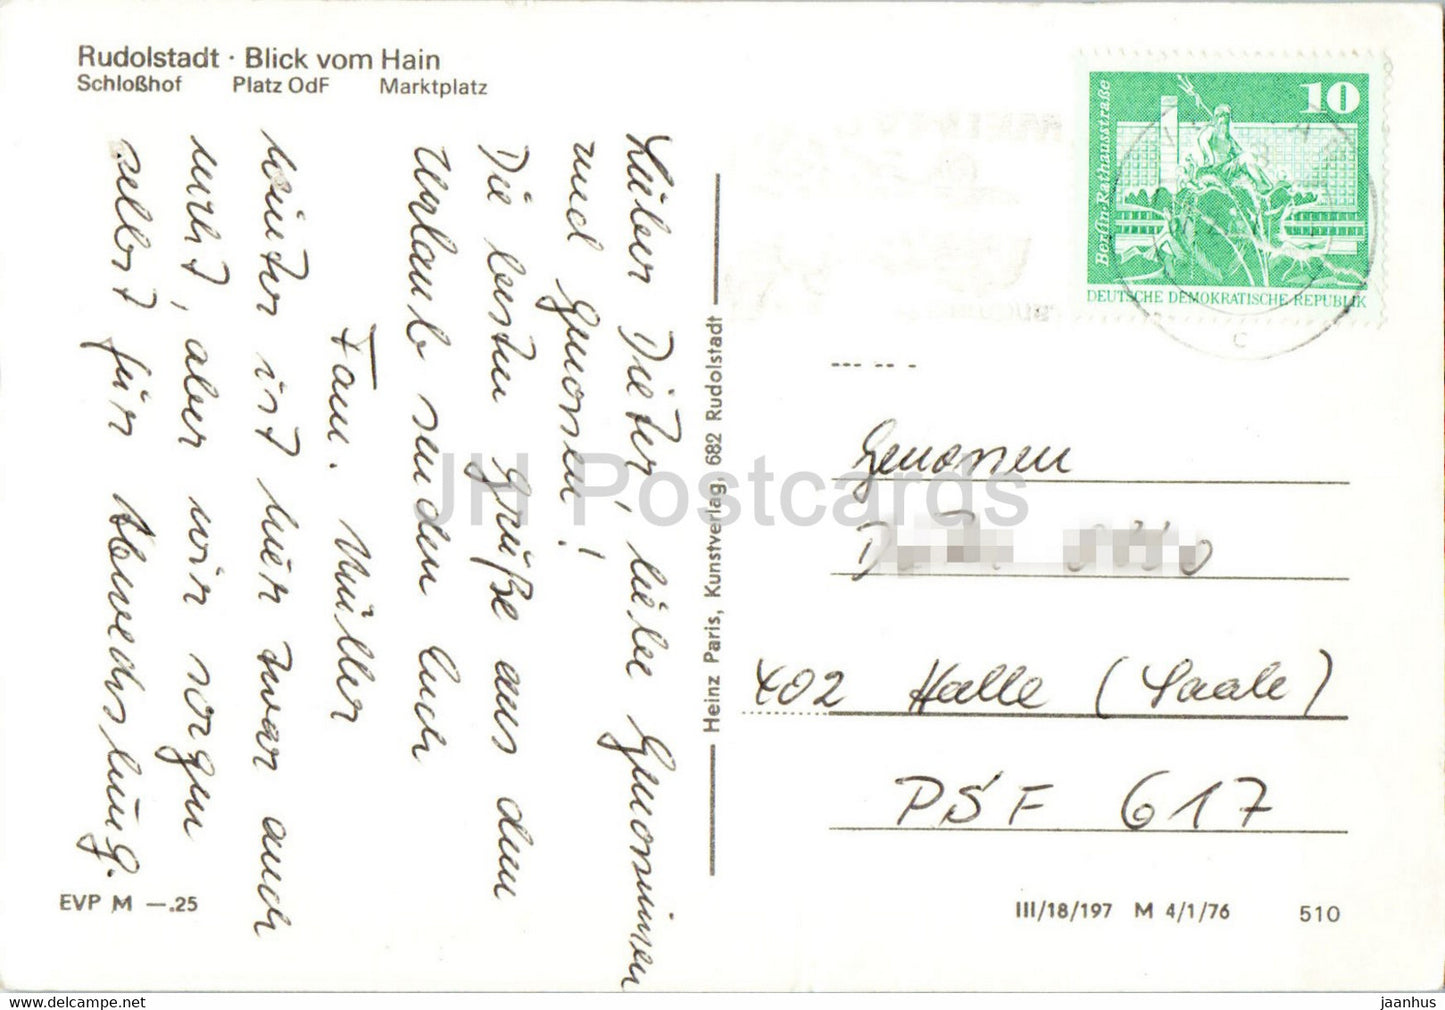 Rudolstadt · Blick vom Hain
Schloßhof Platz OdF Marktplatz
Lieber Dieter, liebe Genossinnen
und Genossen!
Die besten Grüße aus dem
Urlaub senden Euch
Fam. Müller
Winter ist hier zwar auch
nicht, aber wir sorgen
selbst für Abwechslung.
EVP M —.25
Heinz Paris, Kunstverlag, 682 Rudolstadt
10
Berlin, Rathausstraße
DEUTSCHE DEMOKRATISCHE REPUBLIK
c
Genossen
402 Halle (Saale)
PSF 617
III/18/197 M 4/1/76 510
JH Postcards
jaanhus